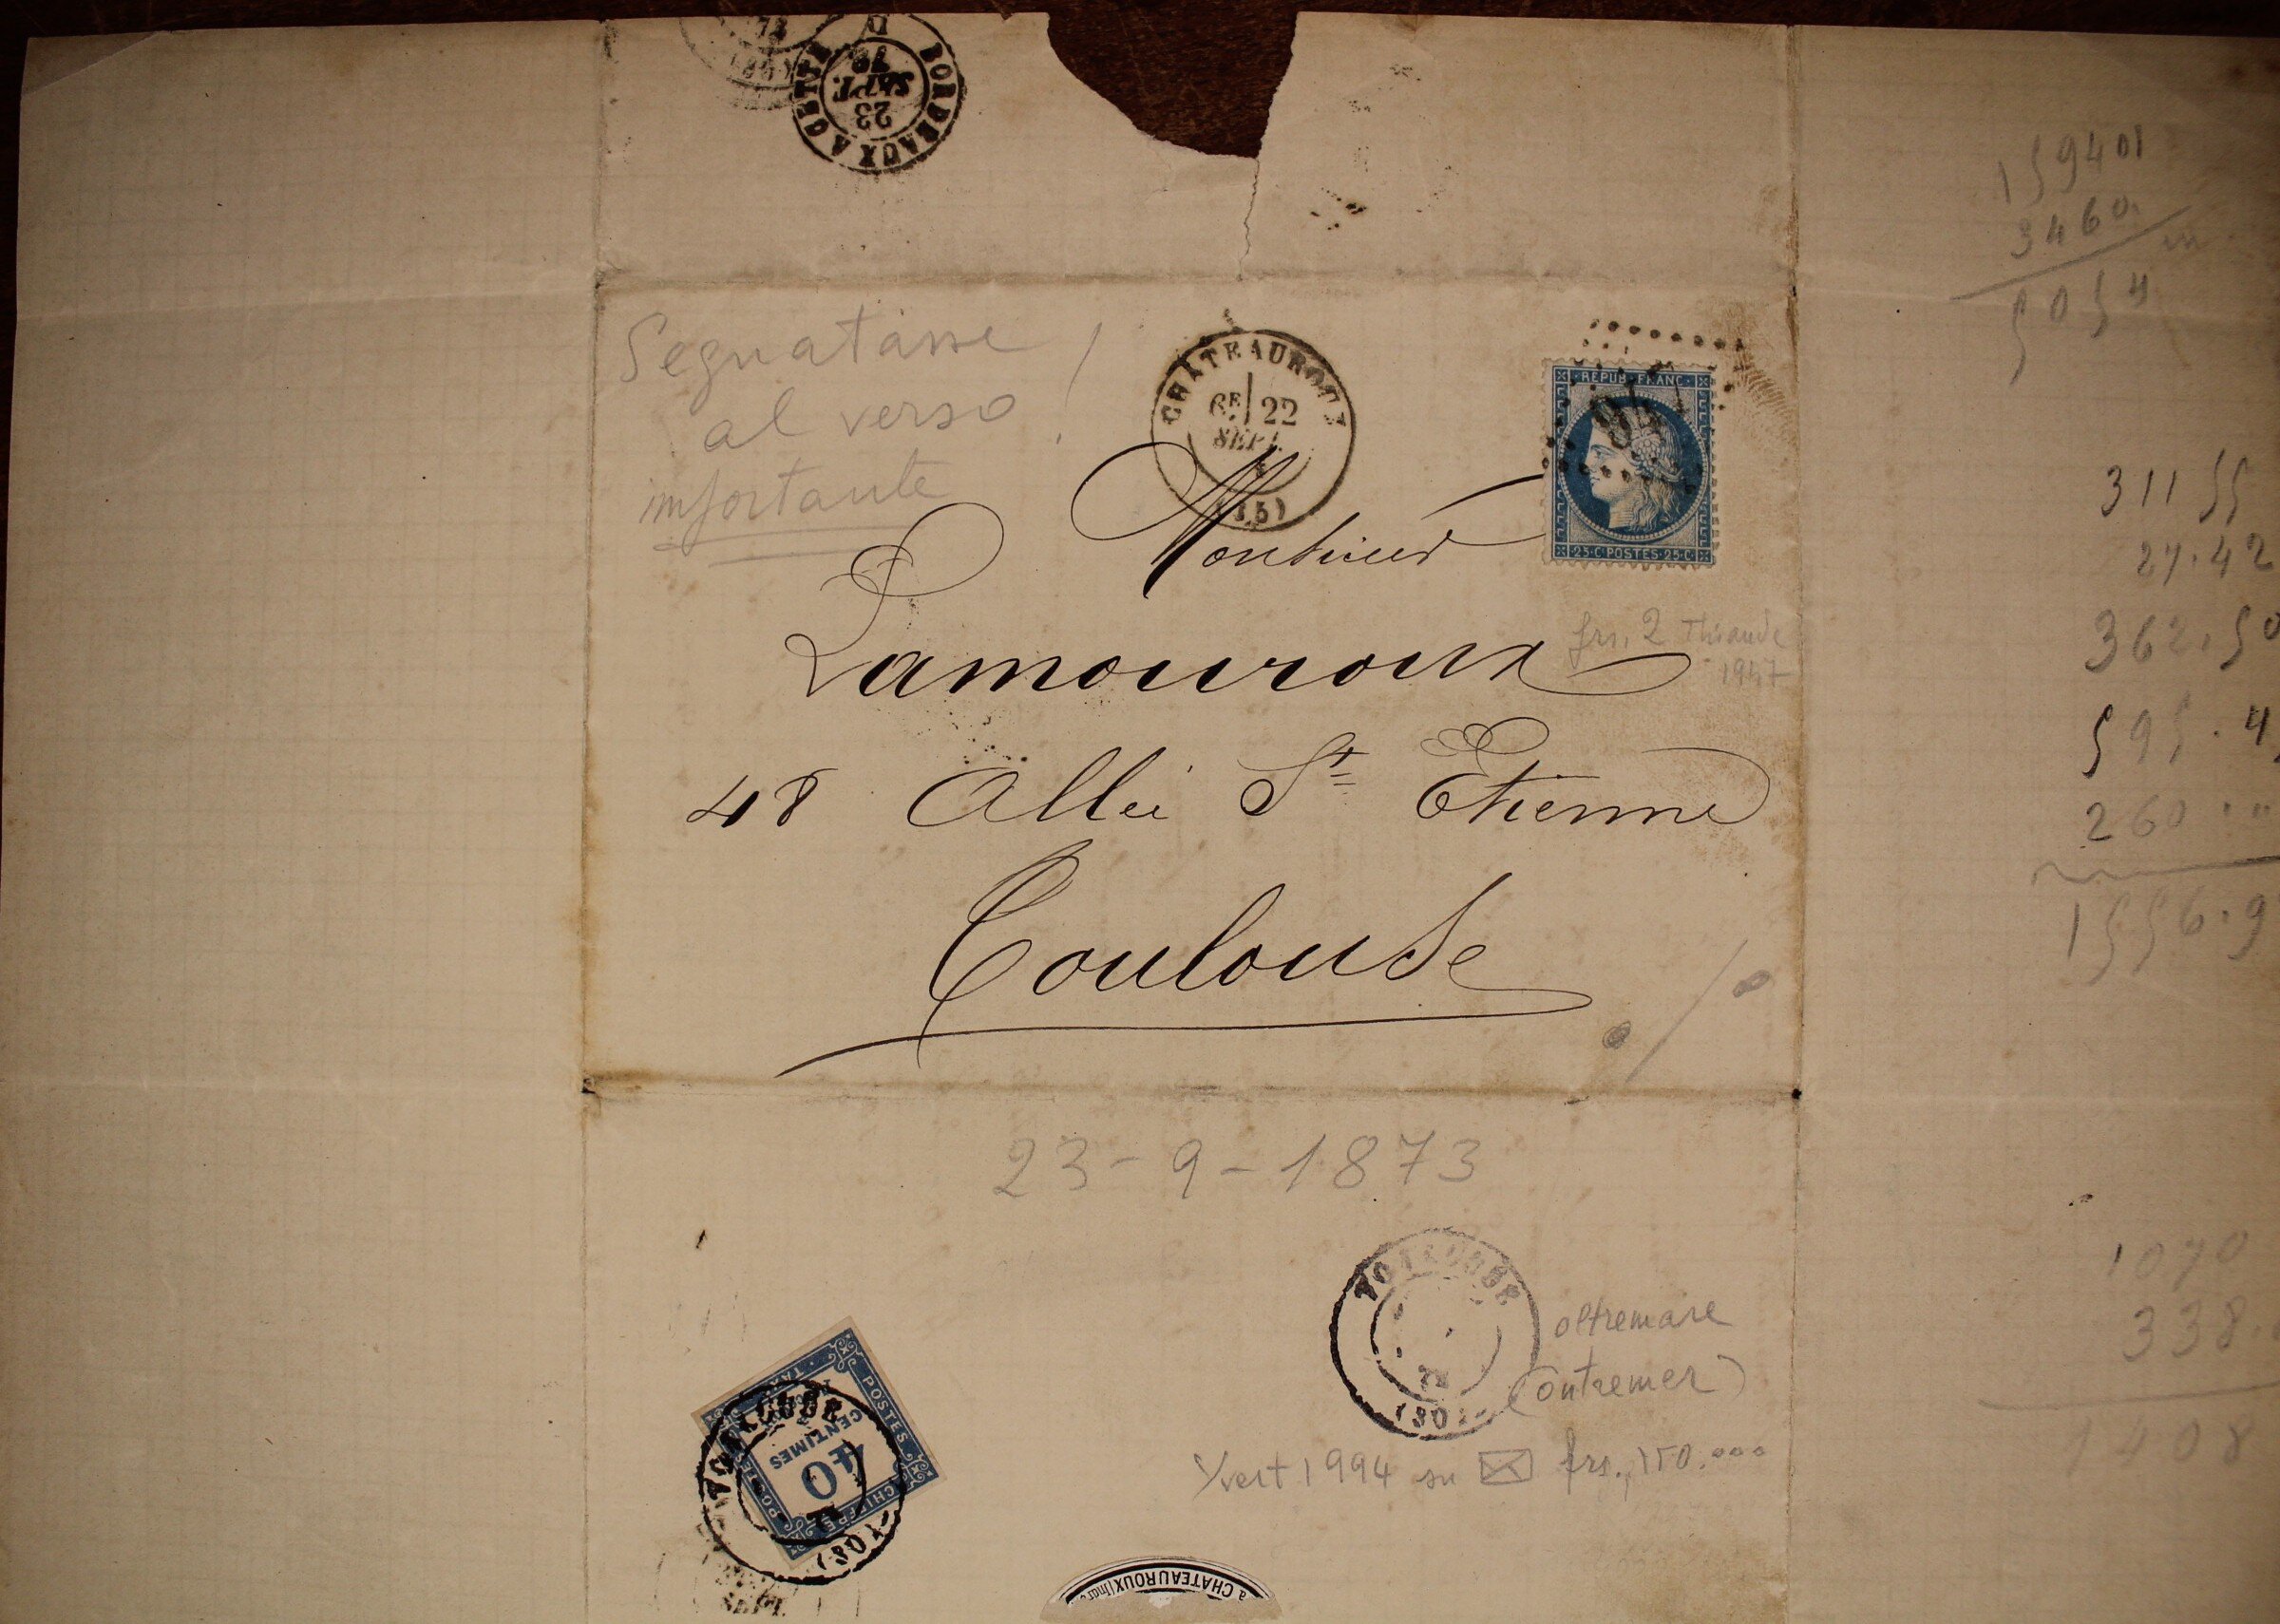 BORDEAUX A CETTE
23
SEPT.
73
159401
3460
5054
Segnatasse !
al verso
importante
CHATEAUROUX
6E 22
SEPT.
(35)
REPUB·FRANC·
947
25·C·POSTES·25·C
Monsieur
frs. 2 Thiaude
1947
Lamouroux
48 Allée St Etienne
Toulouse
31155
27.42
362.50
595.4
260
1556.9
23-9-1873
TOULOUSE
(30)
oltremare
(outremer)
Yvert 1994 su frs. 150.000
1070
338
1408
CHIFFRE
TAXE
POSTES
40
CENTIMES
TOULOUSE
SEPT.
à CHATEAUROUX (Indre